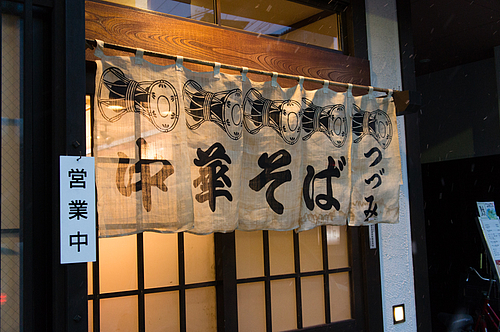 中華そば
つづみ
営業中